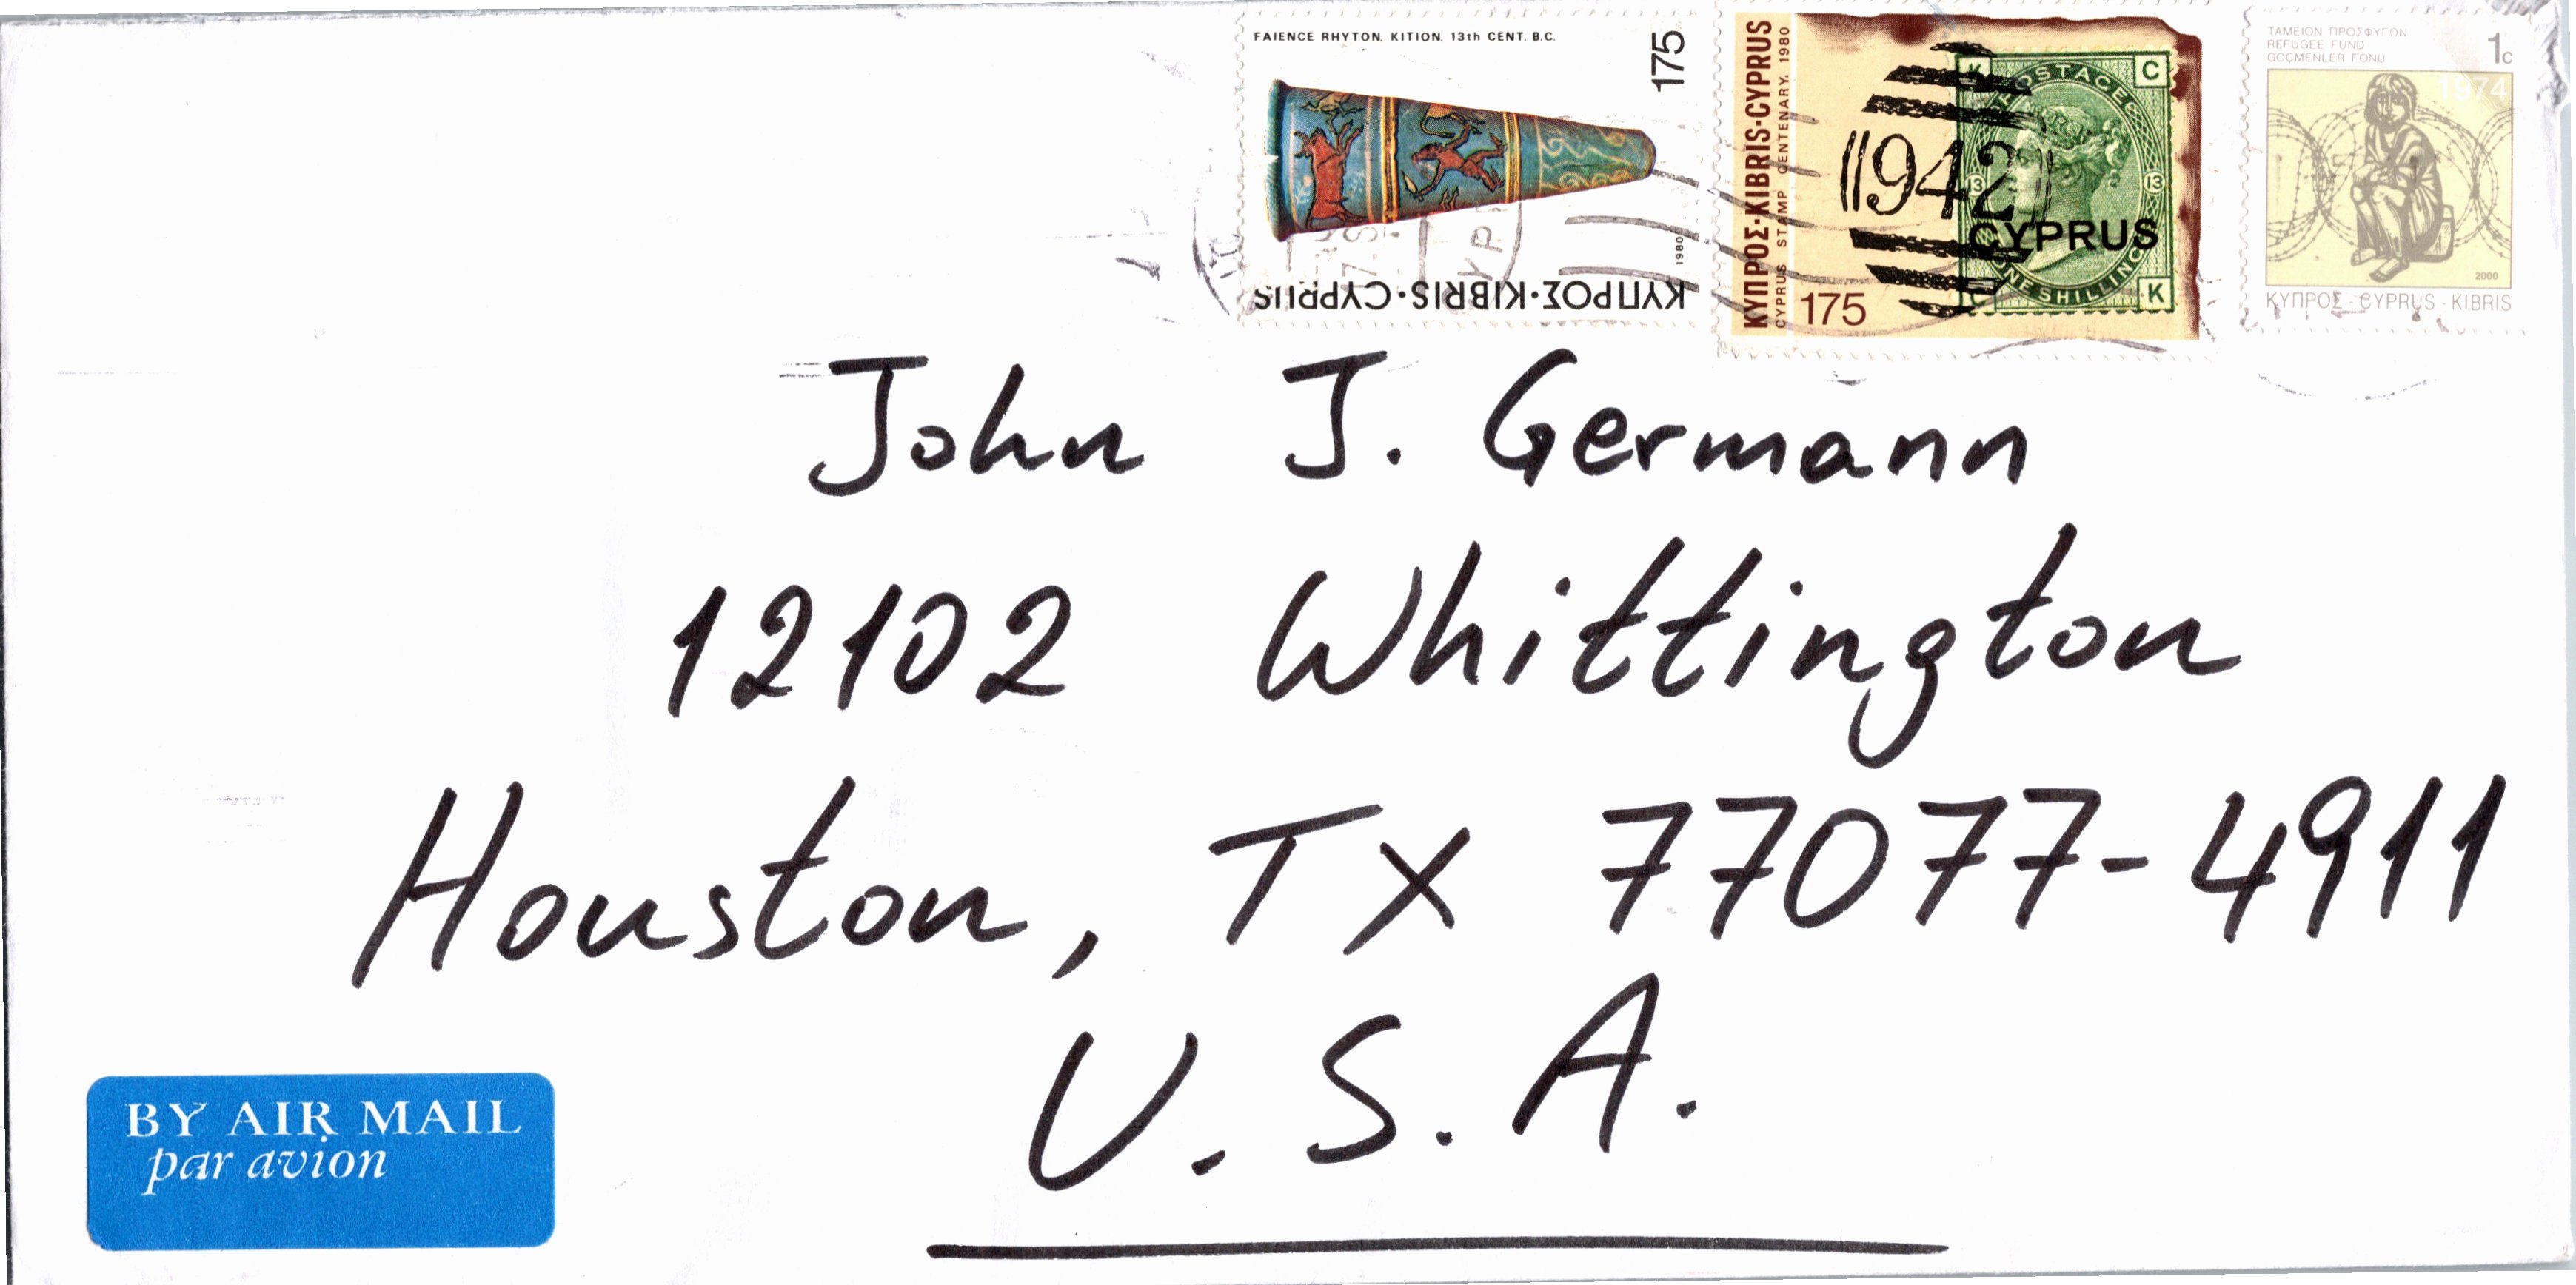 FAIENCE RHYTON. KITION. 13th CENT. B.C.
175
1980
ΚΥΠΡΟΣ·KIBRIS·CYPRUS
ΚΥΠΡΟΣ·KIBRIS·CYPRUS
CYPRUS STAMP CENTENARY. 1980
175
942
K C
POSTAGE
13 13
CYPRUS
ONE SHILLING
C K
ΤΑΜΕΙΟΝ ΠΡΟΣΦΥΓΩΝ
REFUGEE FUND
GÖÇMENLER FONU
1c
1974
2000
ΚΥΠΡΟΣ - CYPRUS - KIBRIS
John J. Germann
12102 Whittington
Houston, TX 77077-4911
U.S.A.
BY AIR MAIL
par avion